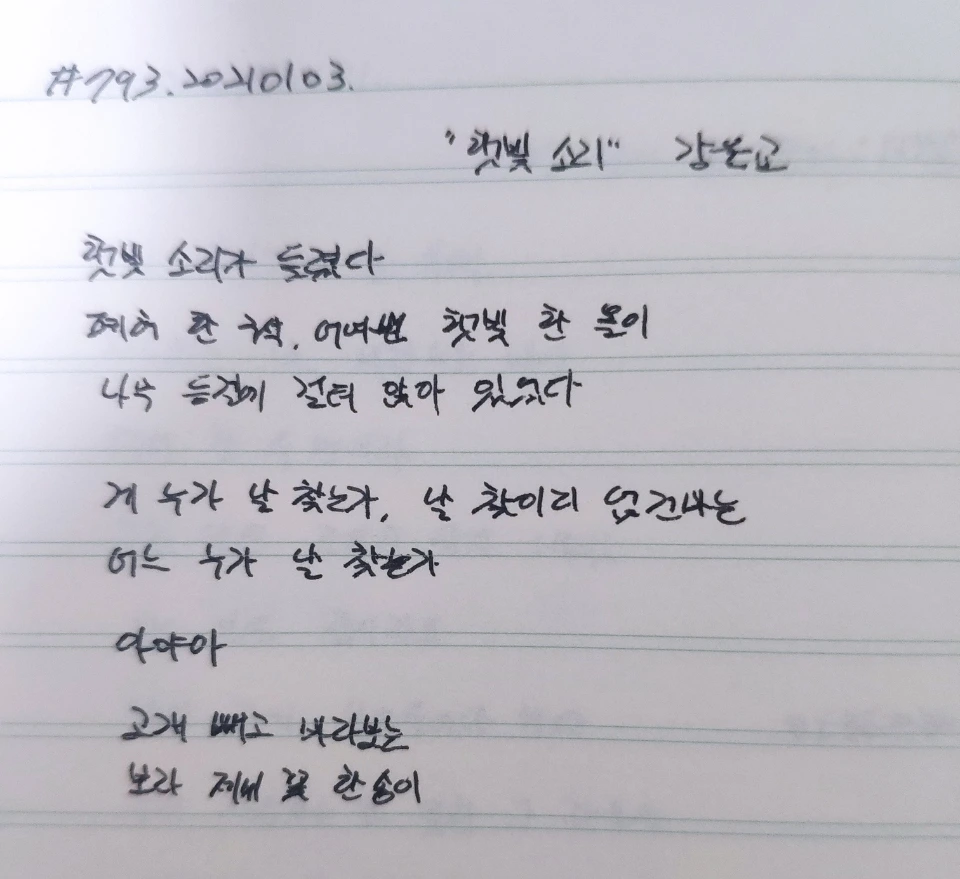 #793.20210103.
"햇빛 소리" 강은교
햇빛 소리가 들렸다
폐허 한 구석, 어여쁜 햇빛 한 올이
나무 등걸에 걸터 앉아 있었다
게 누가 날 찾는가, 날 찾이리 없건마는
어느 누가 날 찾는가
아야아
고개 빼고 바라보는
보라 제비 꽃 한 송이